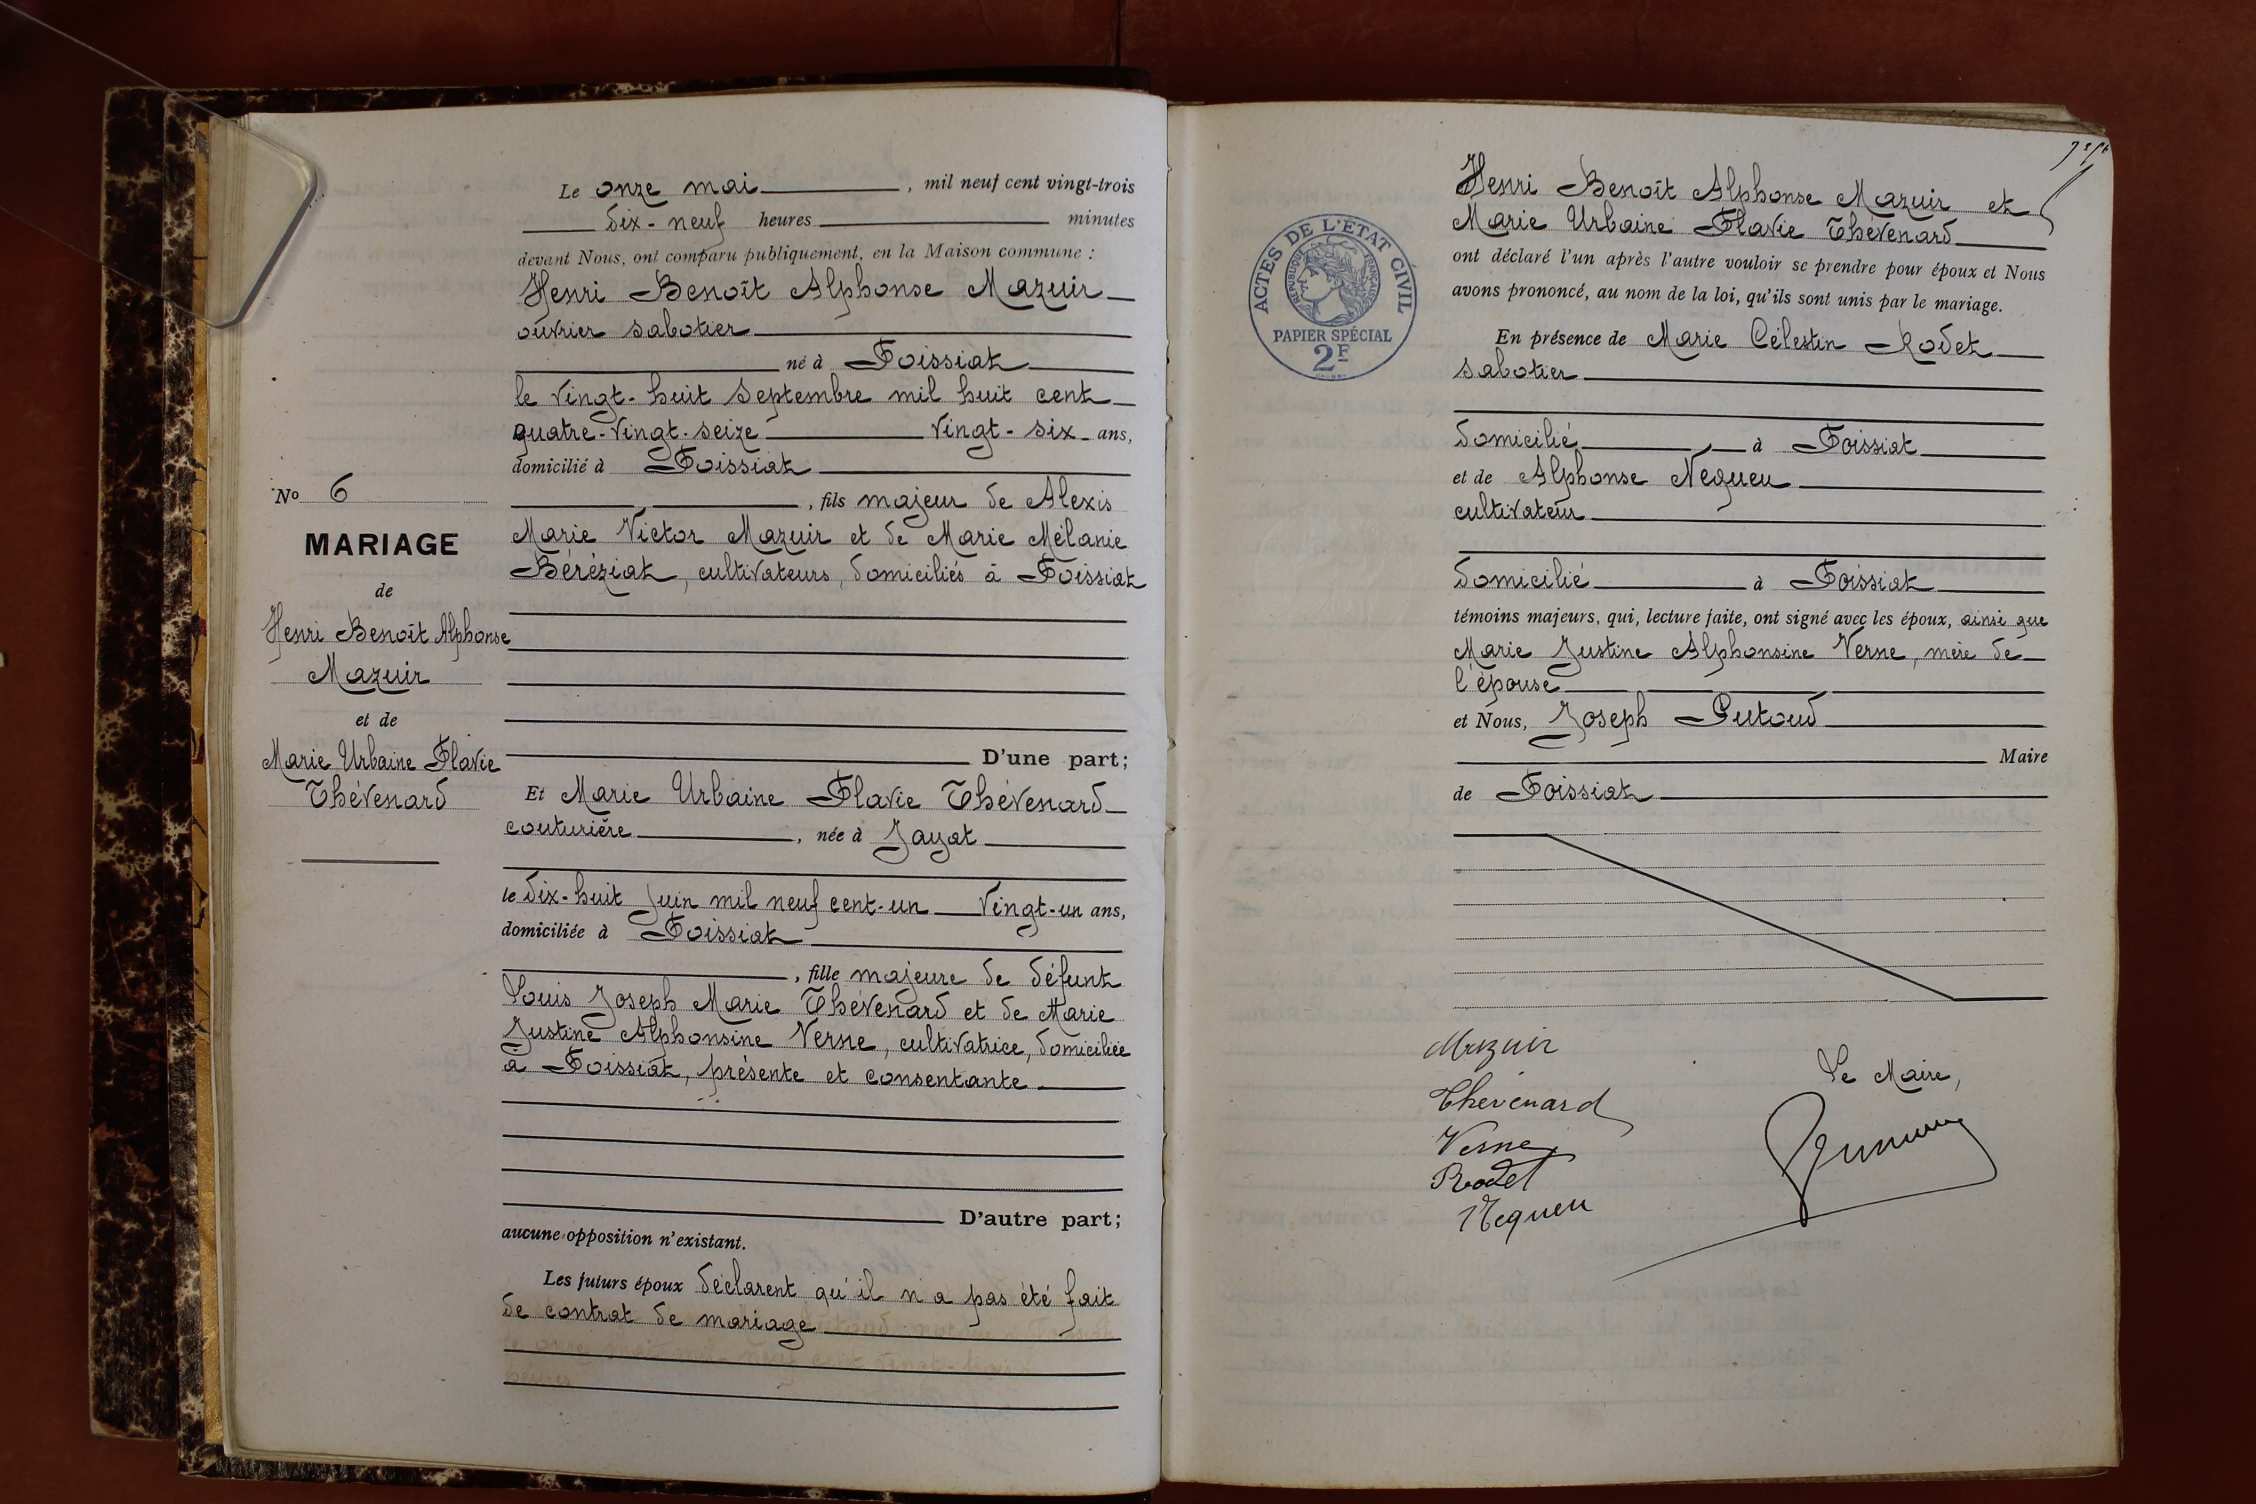 Le onze mai, mil neuf cent vingt-trois
dix-neuf heures minutes
devant Nous, ont comparu publiquement, en la Maison commune :
Henri Benoît Alphonse Mazuir
ouvrier sabotier
né à Foissiat
le vingt-huit septembre mil huit cent
quatre-vingt-seize vingt-six ans,
domicilié à Foissiat
, fils majeur de Alexis
Marie Victor Mazuir et de Marie Mélanie
Béréziat, cultivateurs, domiciliés à Foissiat
D'une part;
Et Marie Urbaine Flavie Thévenard
couturière, née à Jayat
le dix-huit juin mil neuf cent-un vingt-un ans,
domiciliée à Foissiat
, fille majeure de défunt
Louis Joseph Marie Thévenard et de Marie
Justine Alphonsine Verne, cultivatrice, domiciliée
à Foissiat, présente et consentante
D'autre part;
aucune opposition n'existant.
Les futurs époux déclarent qu'il n'a pas été fait
de contrat de mariage
No 6
MARIAGE
de
Henri Benoît Alphonse
Mazuir
et de
Marie Urbaine Flavie
Thévenard
Henri Benoît Alphonse Mazuir et
Marie Urbaine Flavie Thévenard
ont déclaré l'un après l'autre vouloir se prendre pour époux et Nous
avons prononcé, au nom de la loi, qu'ils sont unis par le mariage.
En présence de Marie Célestin Rodet
sabotier
domicilié à Foissiat
et de Alphonse Nequeu
cultivateur
domicilié à Foissiat
témoins majeurs, qui, lecture faite, ont signé avec les époux, ainsi que
Marie Justine Alphonsine Verne, mère de
l'épouse
et Nous, Joseph Putoud
Maire
de Foissiat
ACTES DE L'ÉTAT CIVIL
RÉPUBLIQUE FRANÇAISE
PAPIER SPÉCIAL
2F
Mazuir
Thévenard
Verne
Rodet
Nequeu
Le Maire,